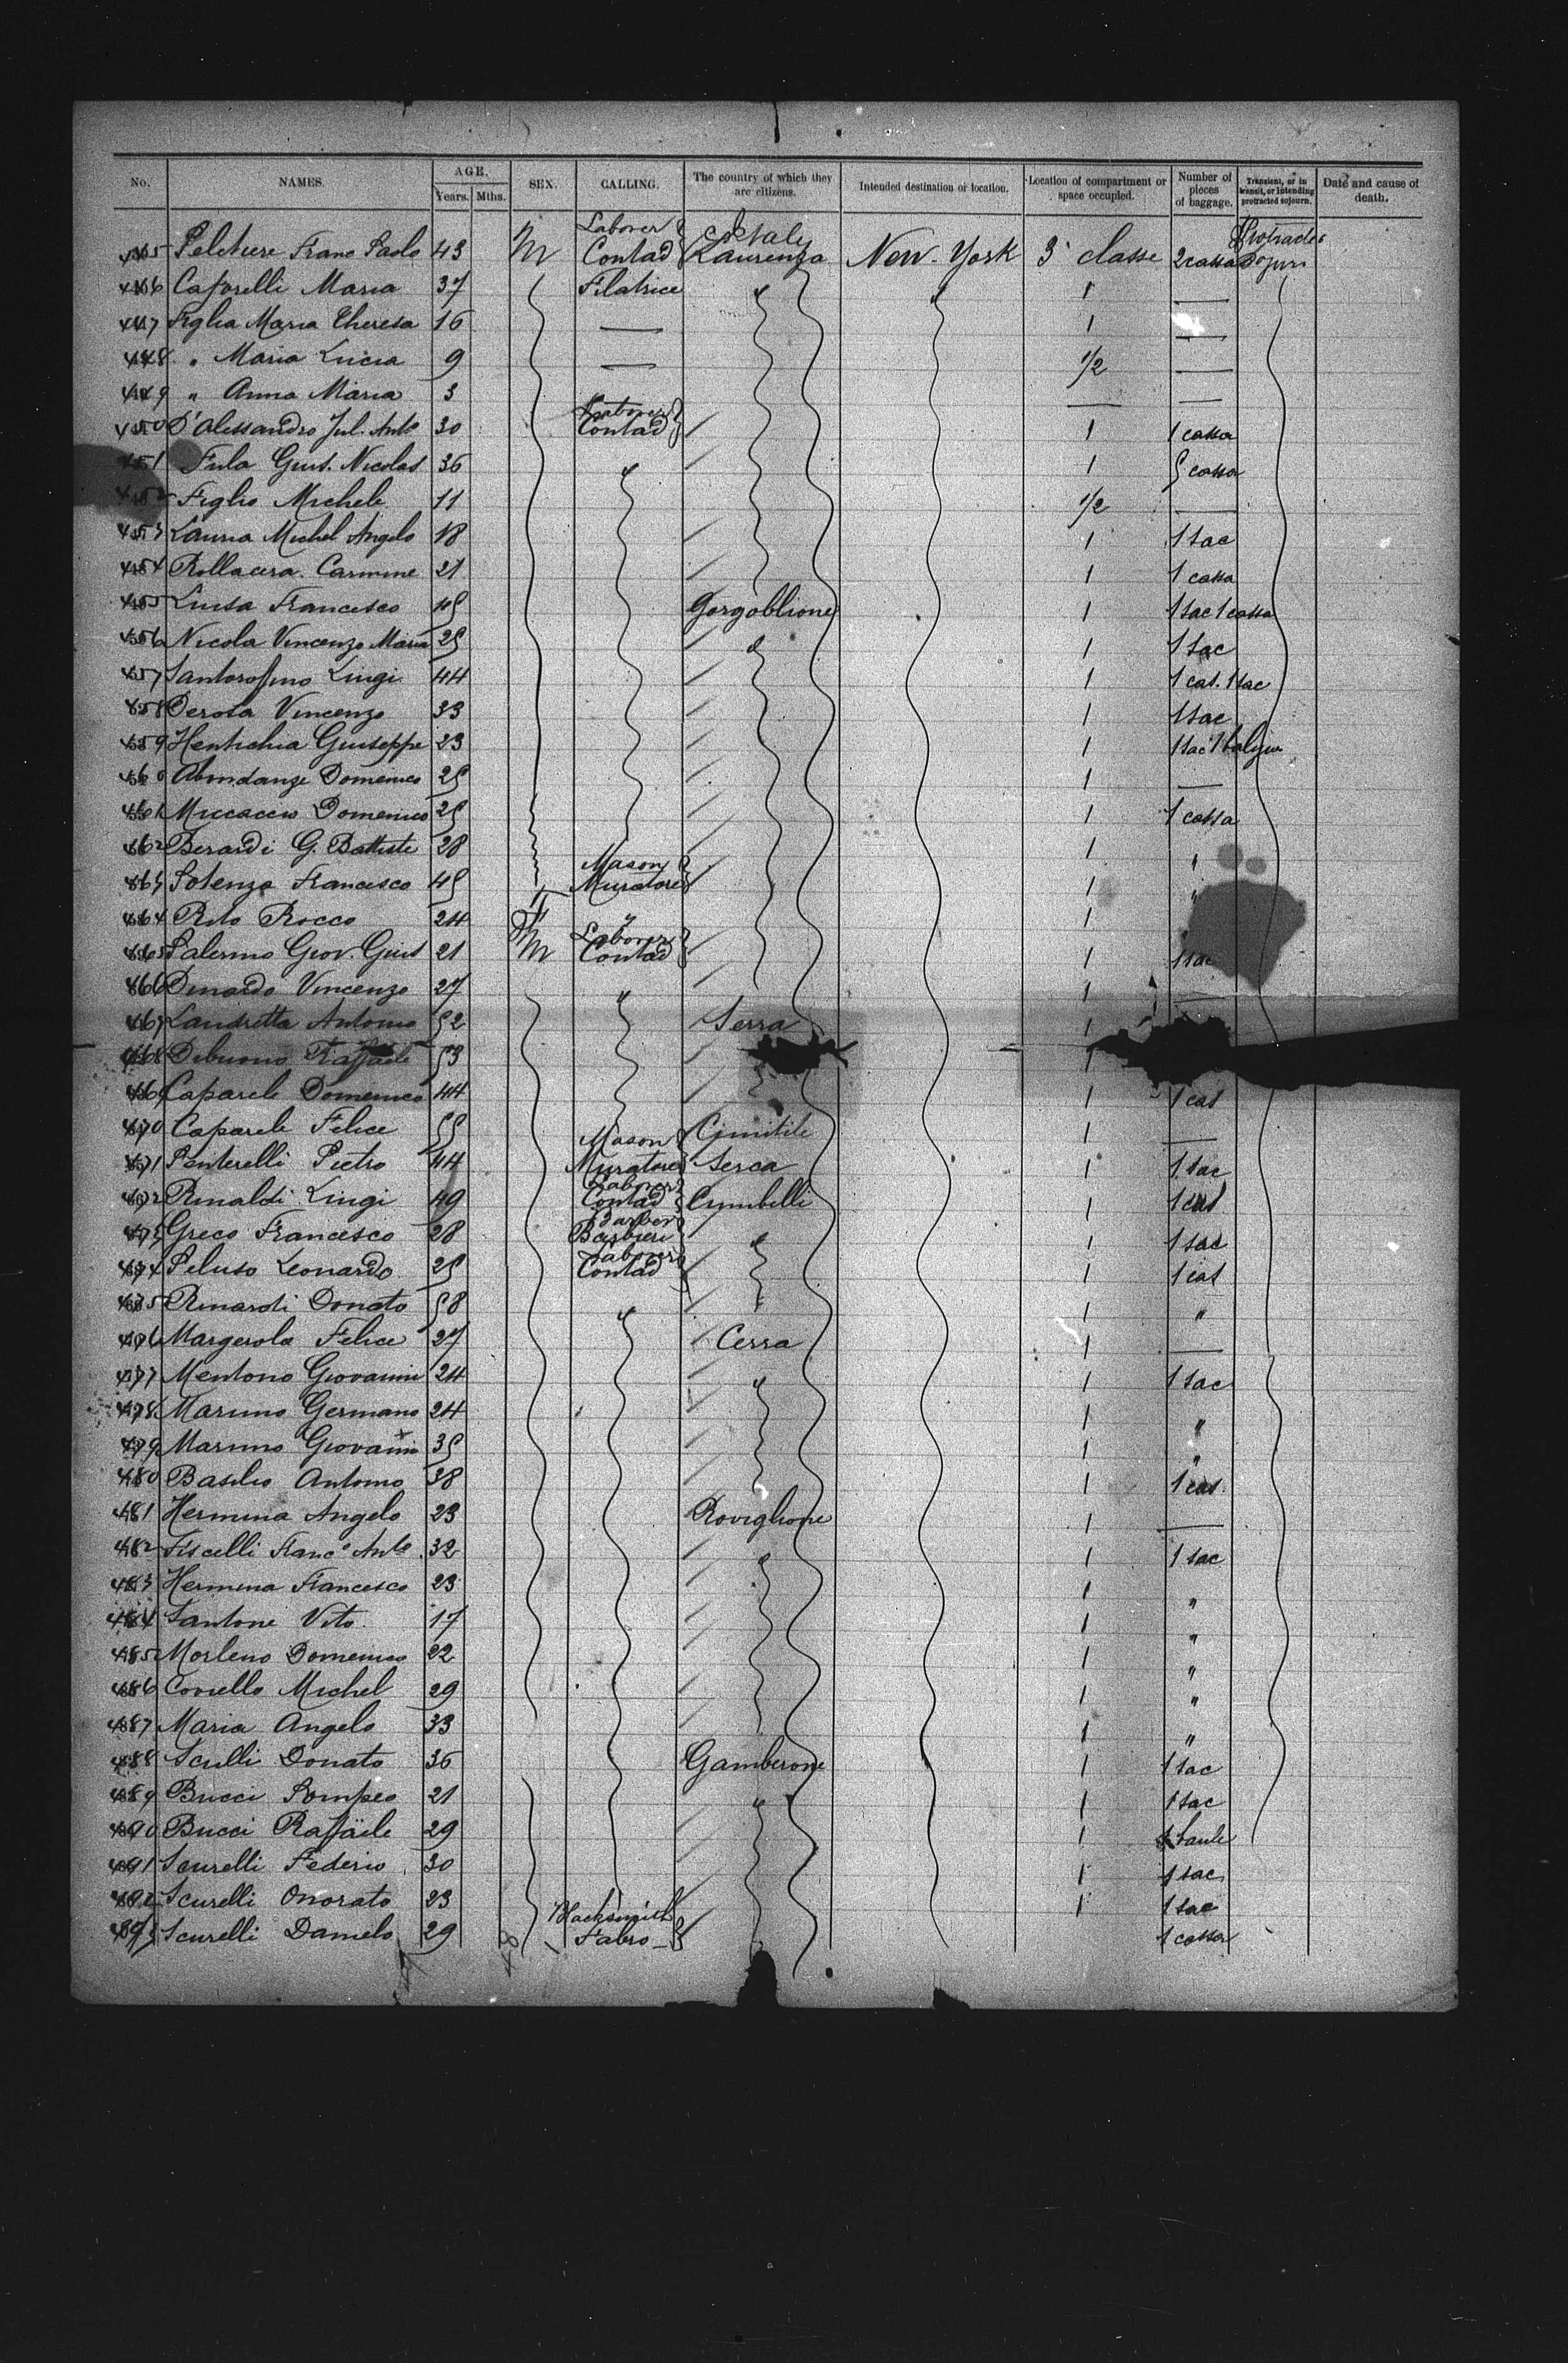 No. NAMES. AGE. Years. Mths. SEX. CALLING. The country of which they are citizens. Intended destination or location. Location of compartment or space occupied. Number of pieces of baggage. Transient, or in transit, or intending protracted sojourn. Date and cause of death.
445 Franc Paolo 43 M Laborer Contad Italy Laurenza New-York 3ª classe 2 cassa
446 Caporelli Maria 37 Filatrice " " 1 —
447 Figlia Maria Theresa 16 — 1 —
448 " Maria Lucia 9 — 1/2 —
449 " Anna Maria 3 — —
450 D'Alessandro Jul. Anto 30 Laborer Contad 1 1 cassa
451 Fula Gius. Nicolas 36 " 1 cassa
452 Figlio Michele 11 1/2 —
453 Lauria Michel Angelo 18 1 1 sac
454 Carmine 21 1 1 cassa
455 Luisa Francesco 45 Gorgoblione 1 1 sac 1 cassa
456 Nicola Vincenzo Maria 25 " 1 1 sac
457 Luigi 44 1 1 cas. 1 sac
458 Derosa Vincenzo 33 1 1 sac
459 Giuseppe 23 1 1 sac 1
460 Abondanze Domenico 25 1 —
461 Miccaccio Domenico 25 1 1 cassa
462 Berardi G. Battiste 28 1 "
463 Potenza Francesco 45 Mason Muratore 1 "
464 Rito Rocco 24 " 1
465 Palermo Giov. Gius 21 M Laborer Contad 1 1 sac
466 Dinardo Vincenzo 27 " 1
467 Landretta Antonio 52 Serra 1
468 Debuono Raffaele 53 1
469 Caparele Domenico 44 1 1 cas
470 Caparele Felice 55 Cimitile 1 —
471 Penterelli Pietro 44 Mason Muratore Serca 1 1 sac
472 Rinaldi Luigi 49 Laborer Contad Crymbelli 1 1 cas
473 Greco Francesco 28 Barber Barbieri " 1 1 sac
474 Peluso Leonardo 25 Laborer Contad 1 1 cas
475 Donato 58 " 1 "
476 Margerola Felice 27 Cerra 1 —
477 Mentono Giovanni 24 " 1 1 sac
478 Marino Germano 24 1 "
479 Marino Giovanni 35 1 "
480 Basilio Antonio 38 1 1 cas.
481 Hermina Angelo 23 Roviglione 1 —
482 Fiscelli Franco Anto. 32 " 1 1 sac
483 Hermina Francesco 23 1 "
484 Santone Vito. 17 1 "
485 Morleno Domenico 22 1 "
486 Coviello Michel 29 1 "
487 Maria Angelo 33 1 "
488 Sculli Donato 36 Gamberone 1 1 sac
489 Bucci Pompeo 21 " 1 1 sac
490 Bucci Raffaele 29 1 1 baule
491 Scurelli Federio 30 1 1 sac
492 Scurelli Onorato 23 1 1 sac
493 Scurelli Daniele 29 Blacksmith Fabro 1 cassa